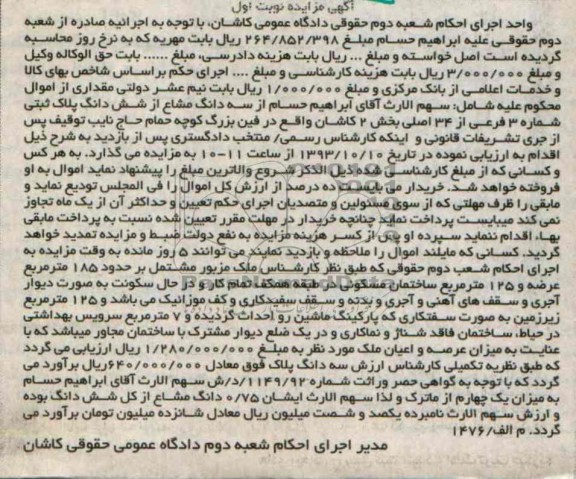 آگهی مزایده نوبت اول
واحد اجرای احکام شعبه دوم حقوقی دادگاه عمومی کاشان، با توجه به اجرائیه صادره از شعبه
دوم حقوقی علیه ابراهیم حسام مبلغ ۲۶۴/۸۵۲/۳۹۸ ریال بابت مهریه که به نرخ روز محاسبه
گردیده است اصل خواسته و مبلغ ... ریال بابت هزینه دادرسی، مبلغ ...... بابت حق الوکاله وکیل
و مبلغ ۳/۰۰۰/۰۰۰ ریال بابت هزینه کارشناسی و مبلغ .... اجرای حکم براساس شاخص بهای کالا
و خدمات اعلامی از بانک مرکزی و مبلغ ۱/۰۰۰/۰۰۰ ریال بابت نیم عشر دولتی مقداری از اموال
محکوم علیه شامل: سهم الارث آقای ابراهیم حسام از سه دانگ مشاع از شش دانگ پلاک ثبتی
شماره ۳ فرعی از ۳۴ اصلی بخش ۲ کاشان واقع در فین بزرگ کوچه حمام حاج نایب توقیف پس
از جری تشریفات قانونی و اینکه کارشناس رسمی/ منتخب دادگستری پس از بازدید به شرح ذیل
اقدام به ارزیابی نموده در تاریخ ۱۳۹۳/۱۰/۱۰ از ساعت ۱۱-۱۰ به مزایده می گذارد. به هر کس
و کسانی که از مبلغ کارشناسی شده ذیل الذکر شروع والاترین مبلغ را پیشنهاد نماید اموال به او
فروخته خواهد شد. خریدار می بایست ده درصد از ارزش کل اموال را فی المجلس تودیع نماید و
مابقی را ظرف مهلتی که از سوی مسئولین و متصدیان اجرای حکم تعیین و حداکثر آن از یک ماه تجاوز
نمی کند میبایست پرداخت نماید چنانچه خریدار در مهلت مقرر تعیین شده نسبت به پرداخت مابقی
بهاء اقدام ننماید سپرده او پس از کسر هزینه مزایده به نفع دولت ضبط و مزایده تمدید خواهد
گردید. کسانی که مایلند اموال را ملاحظه و بازدید نمایند می توانند ۵ روز مانده به وقت مزایده به
اجرای احکام شعب دوم حقوقی که طبق نظر کارشناس ملک مزبور مشتمل بر حدود ۱۸۵ مترمربع
عرصه و ۱۲۵ مترمربع ساختمان مسکونی در طبقه همکف تمام کاره و در حال سکونت به صورت دیوار
آجری و سقف های آهنی و آجری و بدنه و سقف سفیدکاری و کف موزائیک می باشد و ۱۲۵ مترمربع
زیرزمین به صورت سفتکاری که پارکینگ ماشین رو احداث گردیده و ۷ مترمربع سرویس بهداشتی
در حیاط، ساختمان فاقد شناژ و نماکاری و در یک ضلع دیوار مشترک با ساختمان مجاور میباشد که با
عنایت به میزان عرصه و اعیان ملک مورد نظر به مبلغ ۱/۲۸۰/۰۰۰/۰۰۰ ریال ارزیابی می گردد
که طبق نظریه تکمیلی کارشناس ارزش سه دانگ پلاک فوق معادل ۶۴۰/۰۰۰/۰۰۰ریال برآورد می
گردد که با توجه به گواهی حصر وراثت شماره ۱۱۴۹/۹۲/د/ش سهم الارث آقای ابراهیم حسام
به میزان یک چهارم از ماترک و لذا سهم الارث ایشان ۰/۷۵ دانگ مشاع از کل شش دانگ بوده
و ارزش سهم الارث نامبرده یکصد و شصت میلیون ریال معادل شانزده میلیون تومان برآورد می
گردد. م الف/۱۴۷۶
مدیر اجرای احکام شعبه دوم دادگاه عمومی حقوقی کاشان